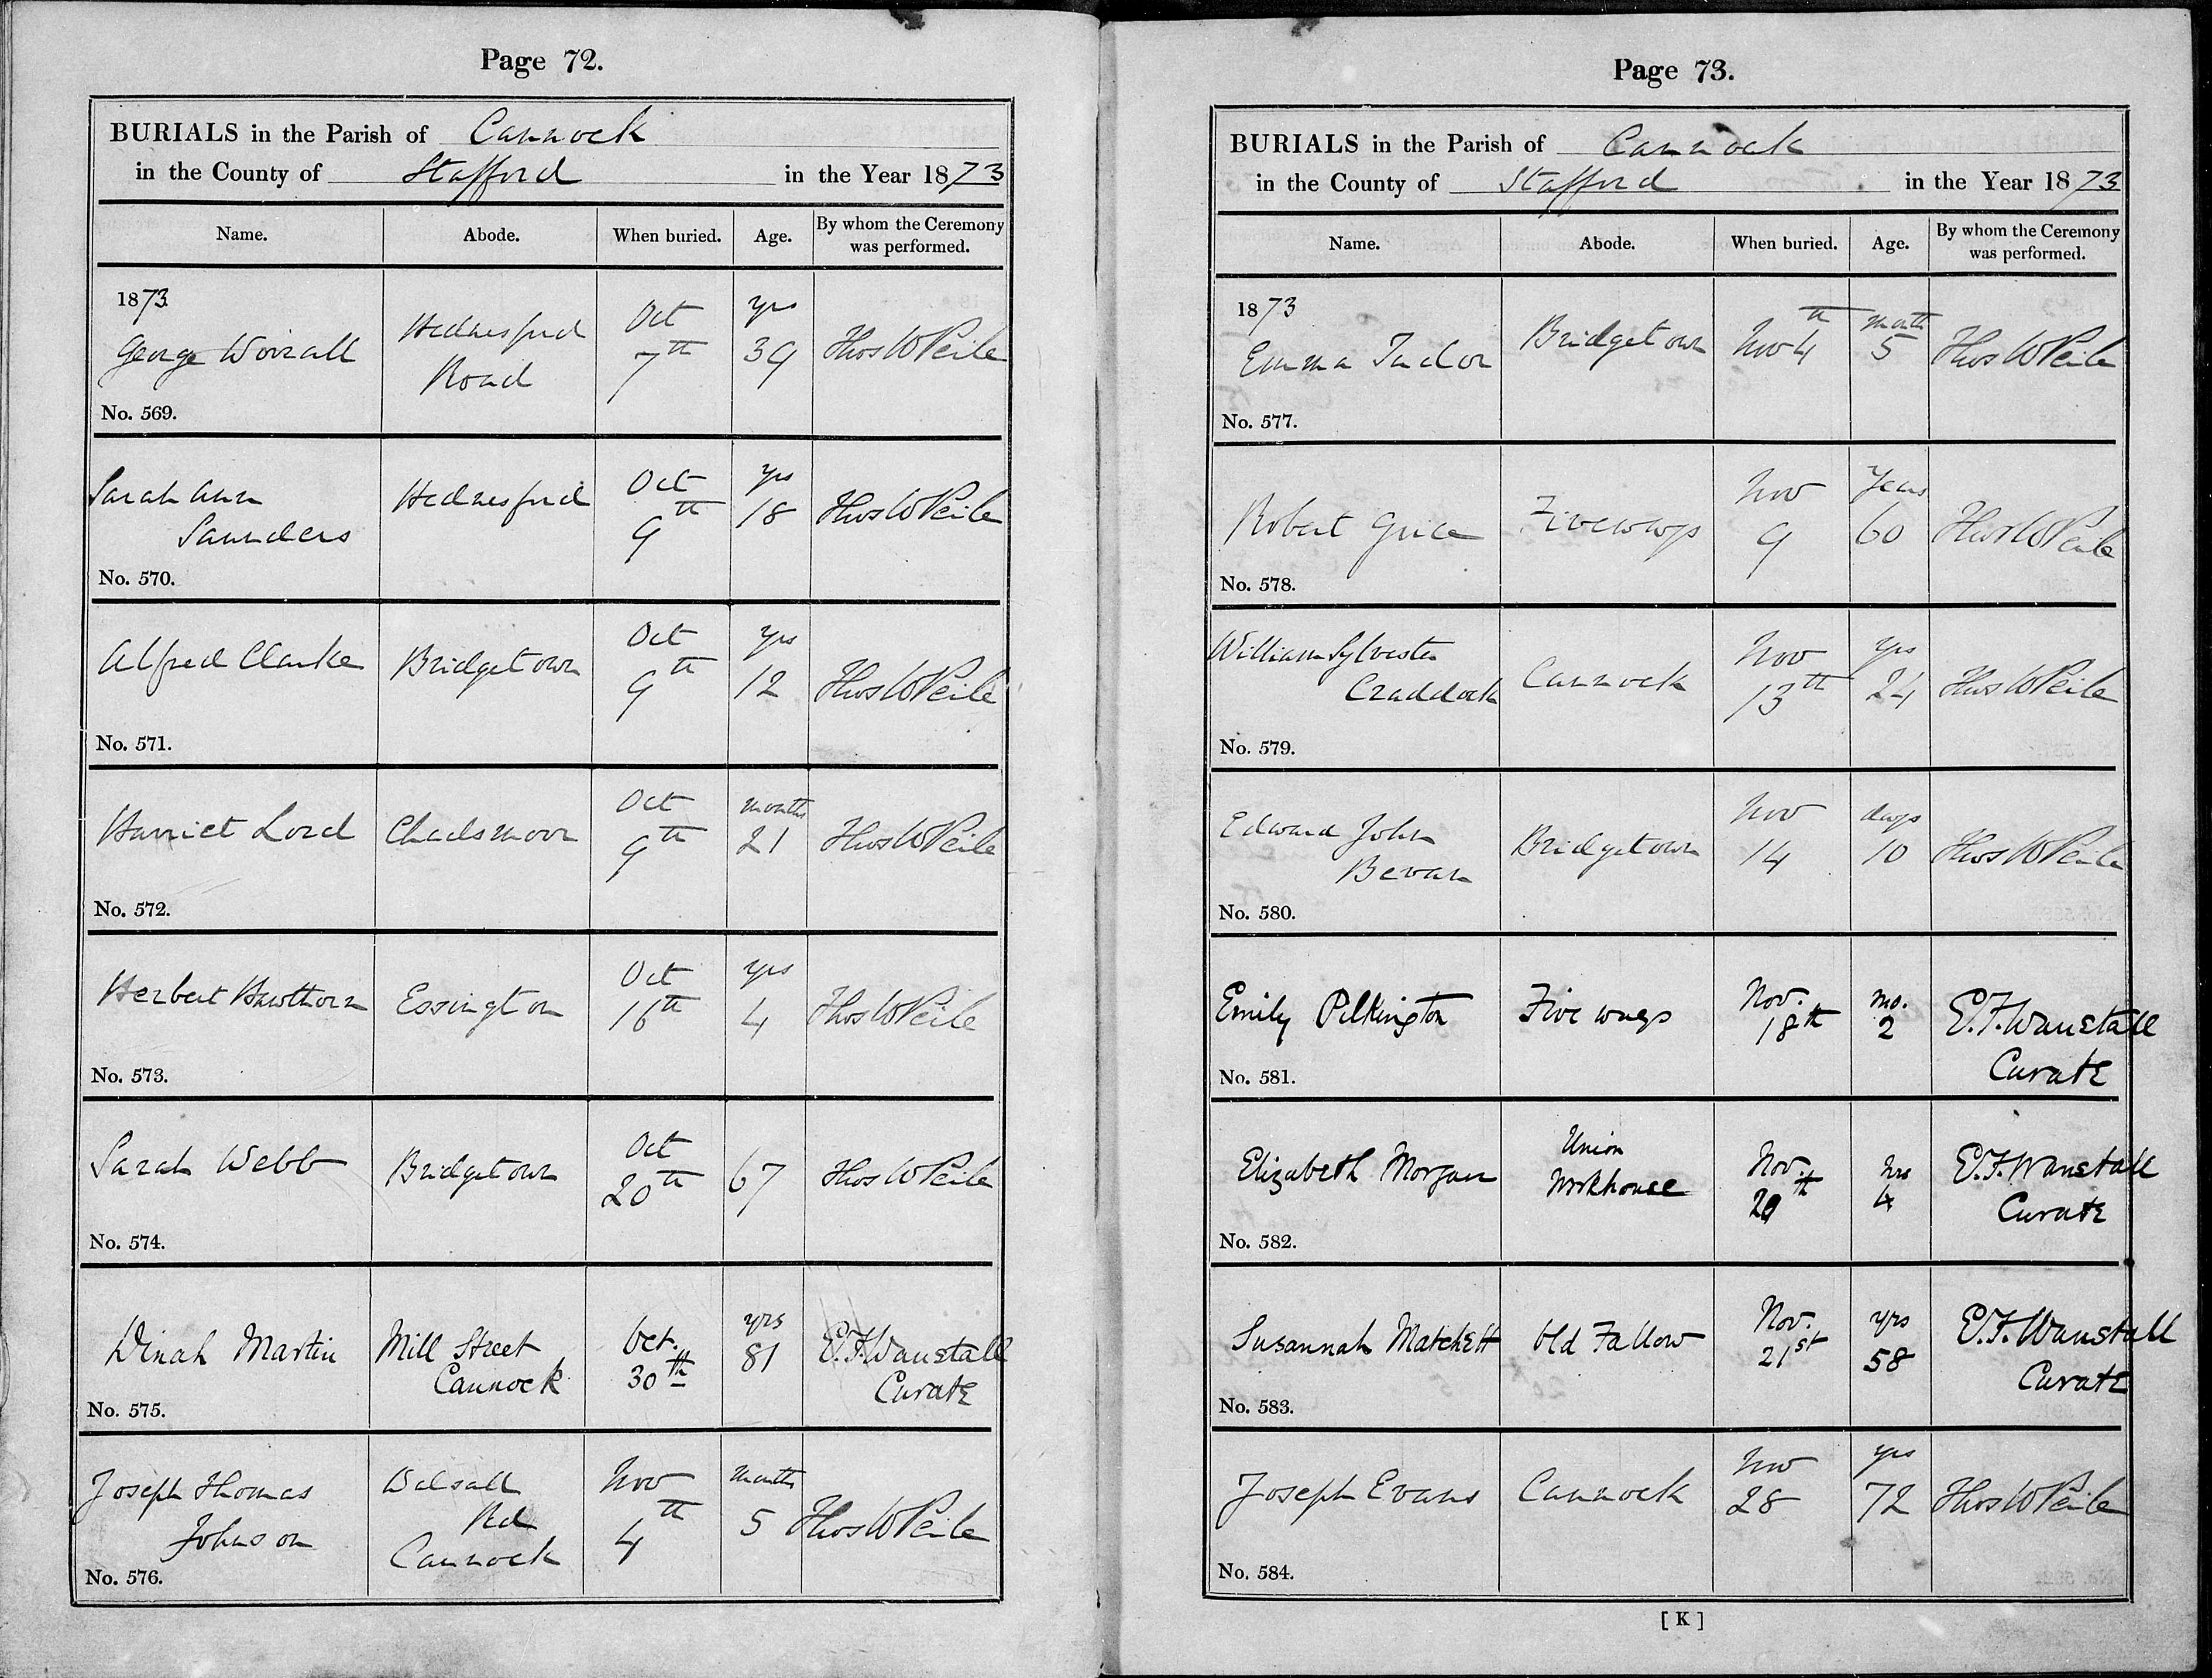 Page 72.
BURIALS in the Parish of Cannock
in the County of Stafford in the Year 1873
Name. Abode. When buried. Age. By whom the Ceremony
was performed.
1873
George Worrall Hednesford Road Oct 7th yrs 39 Thos W Peile
No. 569.
Sarah Ann
Saunders Hednesford Oct 9th yrs 18 Thos W Peile
No. 570.
Alfred Clarke Bridgetown Oct 9th yrs 12 Thos W Peile
No. 571.
Harriet Lord Chadsmoor Oct 9th months 21 Thos W Peile
No. 572.
Herbert Hawthorn Essington Oct 16th yrs 4 Thos W Peile
No. 573.
Sarah Webb Bridgetown Oct 20th 67 Thos W Peile
No. 574.
Dinah Martin Mill Street Cannock Oct. 30th yrs 81 E. F. Wanstall
Curate
No. 575.
Joseph Thomas
Johnson Walsall Rd Cannock Nov 4th months 5 Thos W Peile
No. 576.
Page 73.
BURIALS in the Parish of Cannock
in the County of Stafford in the Year 1873
Name. Abode. When buried. Age. By whom the Ceremony
was performed.
1873
Emma Tudor Bridgetown Nov 4th month 5 Thos W Peile
No. 577.
Robert Grice Fiveways Nov 9 Years 60 Thos W Peile
No. 578.
William Sylvester
Craddock Cannock Nov 13th yrs 24 Thos W Peile
No. 579.
Edward John
Bevan Bridgetown Nov 14 days 10 Thos W Peile
No. 580.
Emily Pilkington Five ways Nov. 18th mo. 2 E. F. Wanstall
Curate
No. 581.
Elizabeth Morgan Union Workhouse Nov. 20th hrs 4 E. F. Wanstall
Curate
No. 582.
Susannah Matchett Old Fallow Nov. 21st yrs 58 E. F. Wanstall
Curate
No. 583.
Joseph Evans Cannock Nov 28 yrs 72 Thos W Peile
No. 584.
[ K ]